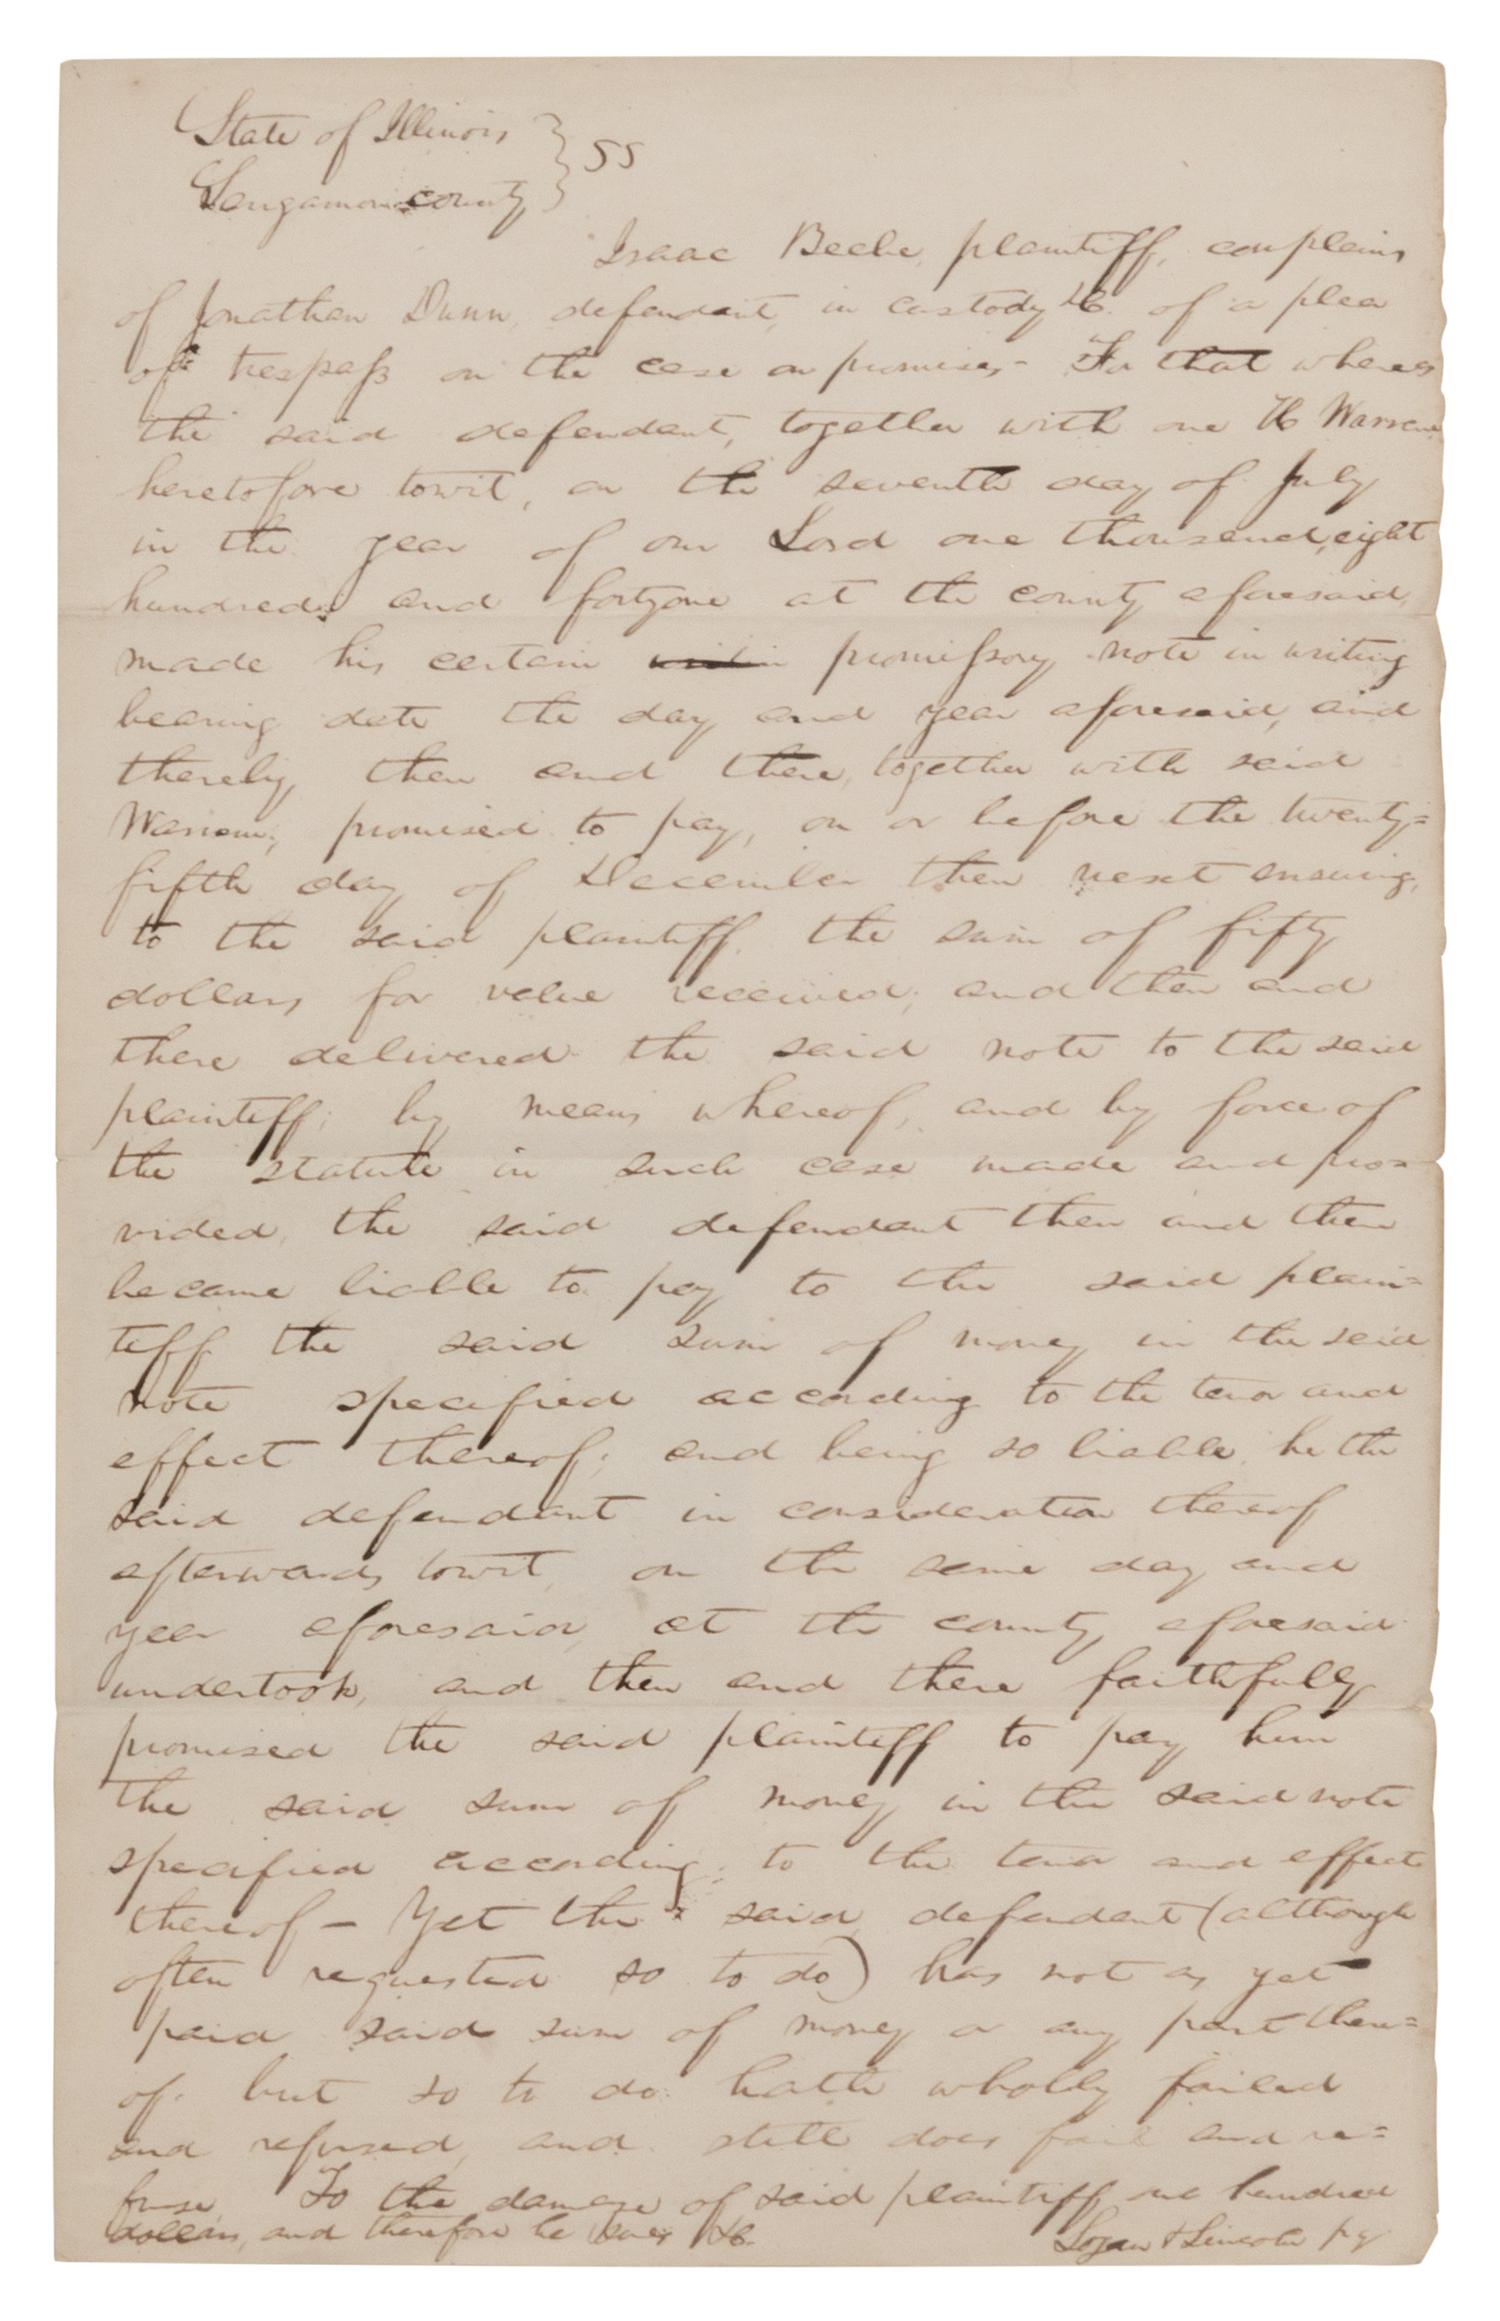 State of Illinois } SS
Sangamon county }
Isaac Beebe, plaintiff, complains
of Jonathan Dunn, defendant, in custody &c. of a plea
of trespass on the case on promises,- For that whereas
the said defendant, together with one H Warren
heretofore towit, on the seventh day of July
in the year of our Lord one thousand, eight
hundred, and fortyone at the county aforesaid,
made his certain promissory note in writing
bearing date the day and year aforesaid, and
thereby then and there, together with said
Warren, promised to pay, on or before the twenty=
fifth day of December then next ensuing,
to the said plaintiff the sum of fifty
dollars for value received; and then and
there delivered the said note to the said
plaintiff; by means whereof, and by force of
the statute in such case made and pro=
vided, the said defendant then and there
became liable to pay to the said plain=
tiff the said sum of money in the said
note specified according to the tenor and
effect thereof; and being so liable, he the
said defendant in consideration thereof
afterwards, towit, on the same day and
year aforesaid, at the county aforesaid
undertook, and then and there faithfully
promised the said plaintiff to pay him
the said sum of money in the said note
specified according to the tenor and effect
thereof— Yet the said defendant (although
often requested so to do) has not as yet
paid said sum of money or any part there=
of. but so to do hath wholly failed
and refused, and still does fail and re=
fuse, To the damage of said plaintiff one hundred
dollars, and therefore he sues &c.
Logan & Lincoln pq